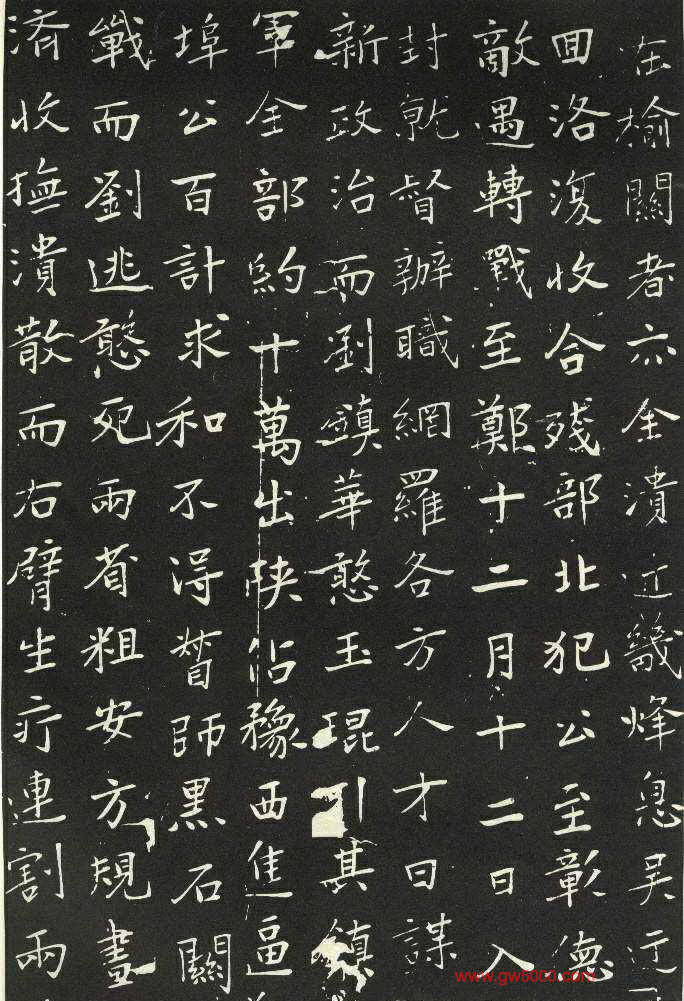 在榆關者亦全潰近畿烽息吳迂
回洛復收合殘部北犯公至彰德
敵遇轉戰至鄭十二月十二日入
封就督辦職網羅各方人才日謀
新政治而劉鎮華憨玉琨引其鎮
軍全部約十萬出陝佔豫西進逼
埠公百計求和不得誓師黑石關
戰而劉逃憨死兩省粗安方規畫
濟收撫潰散而右臂生疔連割兩
www.gw5000.com